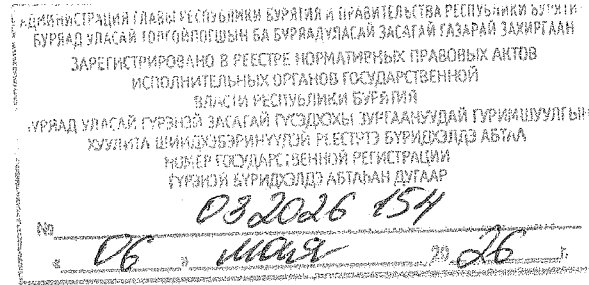 АДМИНИСТРАЦИЯ ГЛАВЫ РЕСПУБЛИКИ БУРЯТИЯ И ПРАВИТЕЛЬСТВА РЕСПУБЛИКИ БУРЯТИЯ
БУРЯАД УЛАСАЙ ТОЛГОЙЛОГШЫН БА БУРЯАД УЛАСАЙ ЗАСАГАЙ ГАЗАРАЙ ЗАХИРГААН
ЗАРЕГИСТРИРОВАНО В РЕЕСТРЕ НОРМАТИВНЫХ ПРАВОВЫХ АКТОВ
ИСПОЛНИТЕЛЬНЫХ ОРГАНОВ ГОСУДАРСТВЕННОЙ
ВЛАСТИ РЕСПУБЛИКИ БУРЯТИЯ
БУРЯАД УЛАСАЙ ГҮРЭНЭЙ ЗАСАГАЙ ГҮЙСЭДХЭХЫ ЗУРГААНУУДАЙ ГУРИМШУУЛГЫН
ХУУЛИТА ШИИДХЭБЭРИНҮҮДЭЙ РЕЕСТРТЭ БҮРИДХЭЛДЭ АБТАА
НОМЕР ГОСУДАРСТВЕННОЙ РЕГИСТРАЦИИ
ГҮРЭНЭЙ БҮРИДХЭЛДЭ АБТАҺАН ДУГААР
№ 032026 154
« 06 » мая 20 26 г.